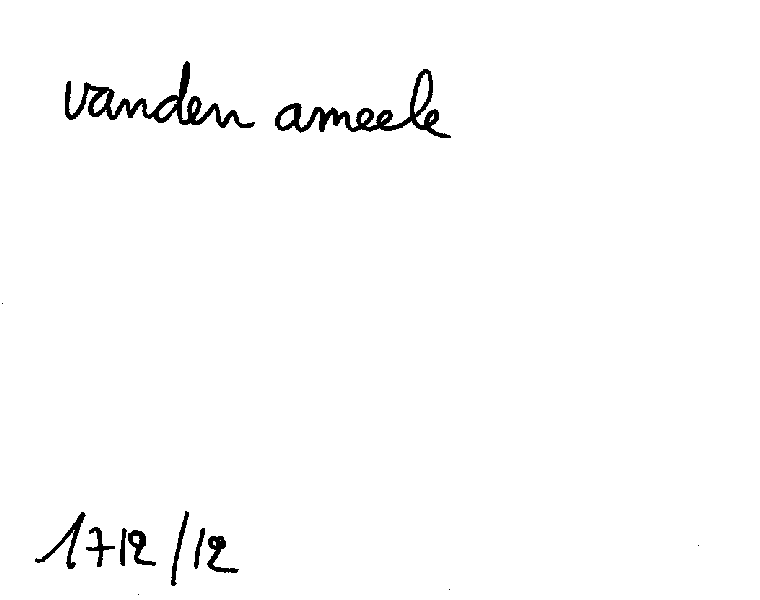 vanden ameele
1712/12